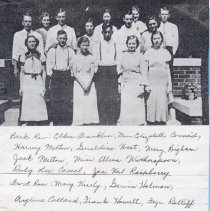 Back Row - Elden Franklin, Miss Elizabeth
Harvey Melton, Geraldine Kent, Mary Bingham
Jack Melton, Miss Alma Witherspoon,
Ruby Lee Cassel, Joe Nel Raspberry
Front Row: Mary Neely, Servin Holeman,
Collard, Frank Howell, Faye Ratliff